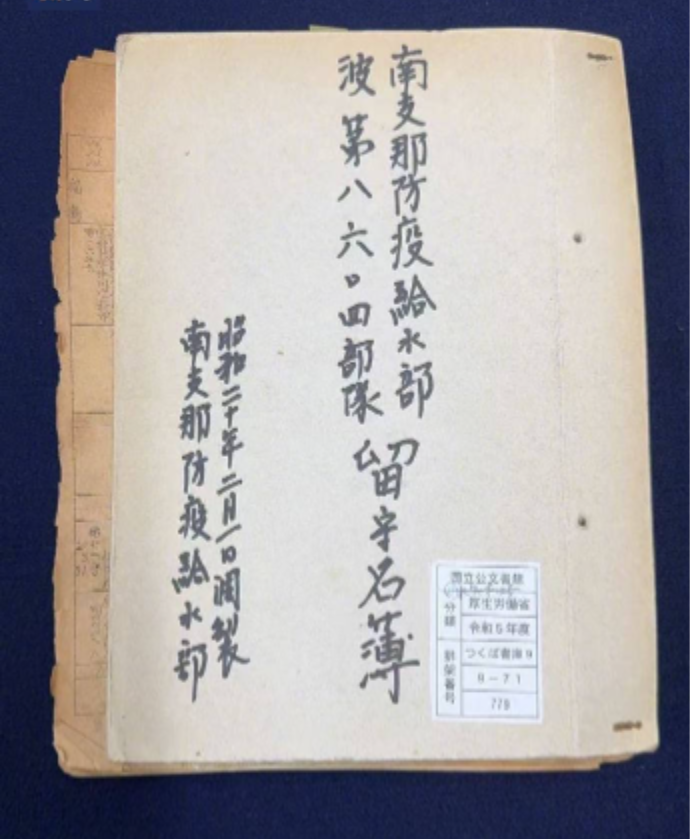 南支那防疫給水部
波第八六〇四部隊
留守名簿
昭和二十年二月一日調製
南支那防疫給水部
国立公文書館
分類
厚生労働省
令和5年度
つくば書庫9
排架番号
9-71
779